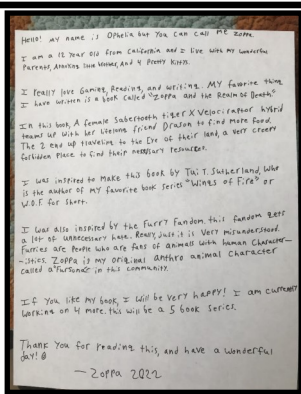 Hello! My name is Ophelia but You can call me Zoppa.
I am a 12 Year old from California and I live with my Wonderful
Parents, Annoying little brother, And 4 Pretty Kittys.
I really love Gaming, Reading, and writing. My favorite thing
I have written is a book called "Zoppa and the Realm of Death"
In this book, A female Sabertooth tiger X Velociraptor hybrid
teams up with her lifelong friend Drason to find More food.
The 2 end up traveling to the Eye of their land, a very creepy
forbidden Place to find their necessary resources.
I was inspired to Make this book by Tui. T. Sutherland, Who
is the author of MY favorite book series "Wings of Fire" or
W.O.F for short.
I was also inspired by the Furry Fandom. this fandom gets
a lot of unnecessary hate. Really, Just it is Very misunderstood.
Furries are People who are fans of animals with human Character-
-istics. Zoppa is my original anthro animal Character
called a "Fursona" in this community.
If You like my book, I will be very happy! I am currently
working on 4 more. this will be a 5 book series.
Thank You for reading this, and have a wonderful
day!
— Zoppa 2022